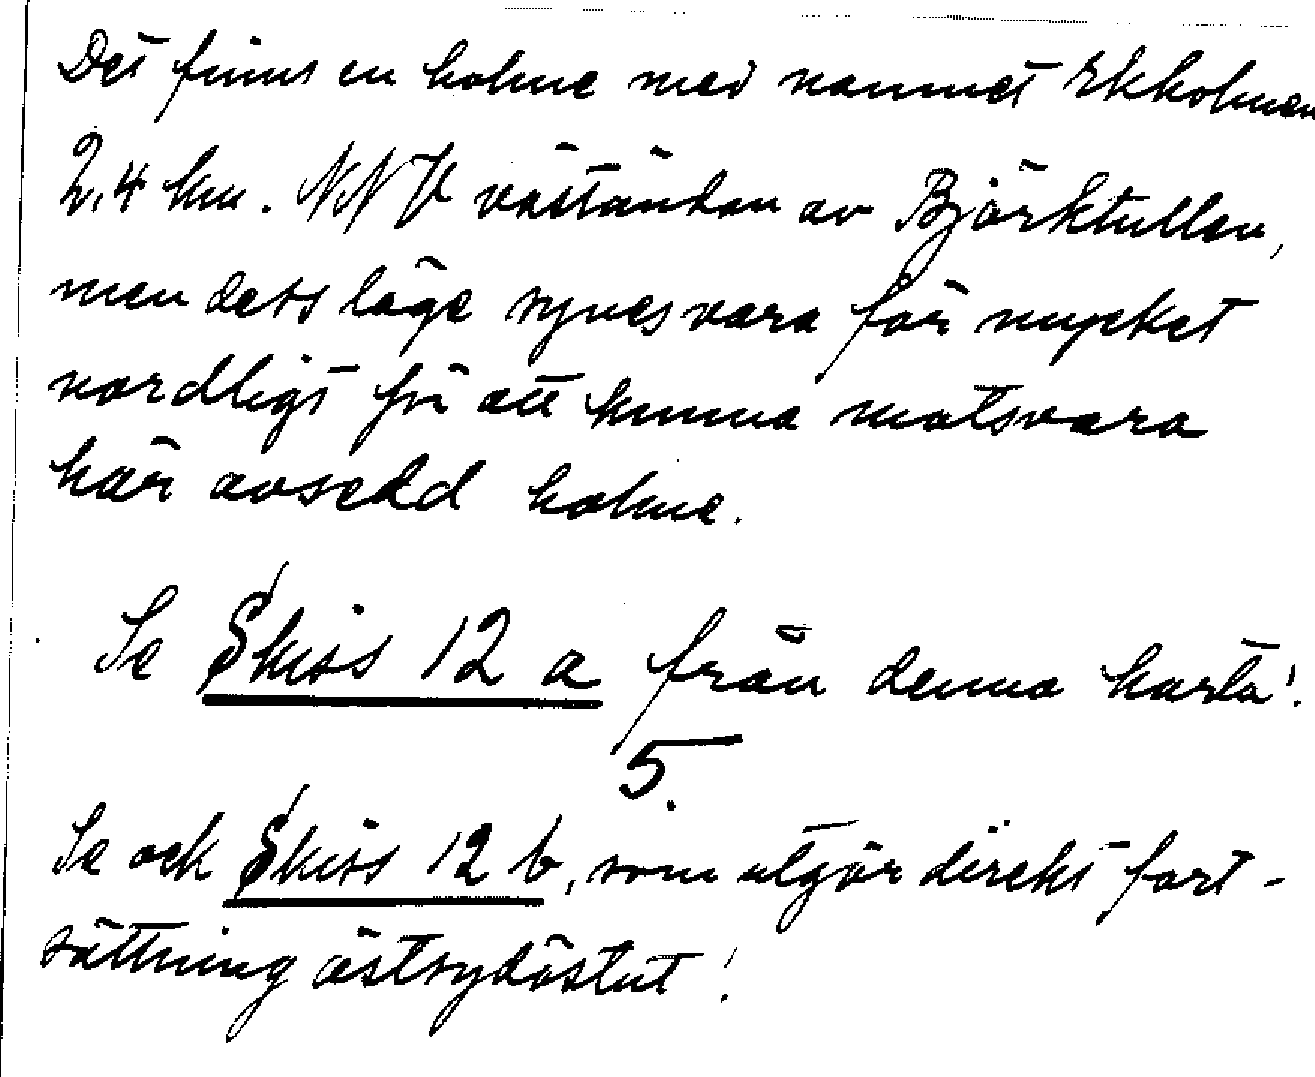 Det finns en holme med namnet Ekholmen
2,4 km. NNV väständan av Björktullen,
men dess läge synes vara för mycket
nordligt för att kunna motsvara
här avsedd holme.
Se Skiss 12 a från denna karta!
5.
Se ock Skiss 12 b, som utgör direkt fort-
sättning östsydöstut!